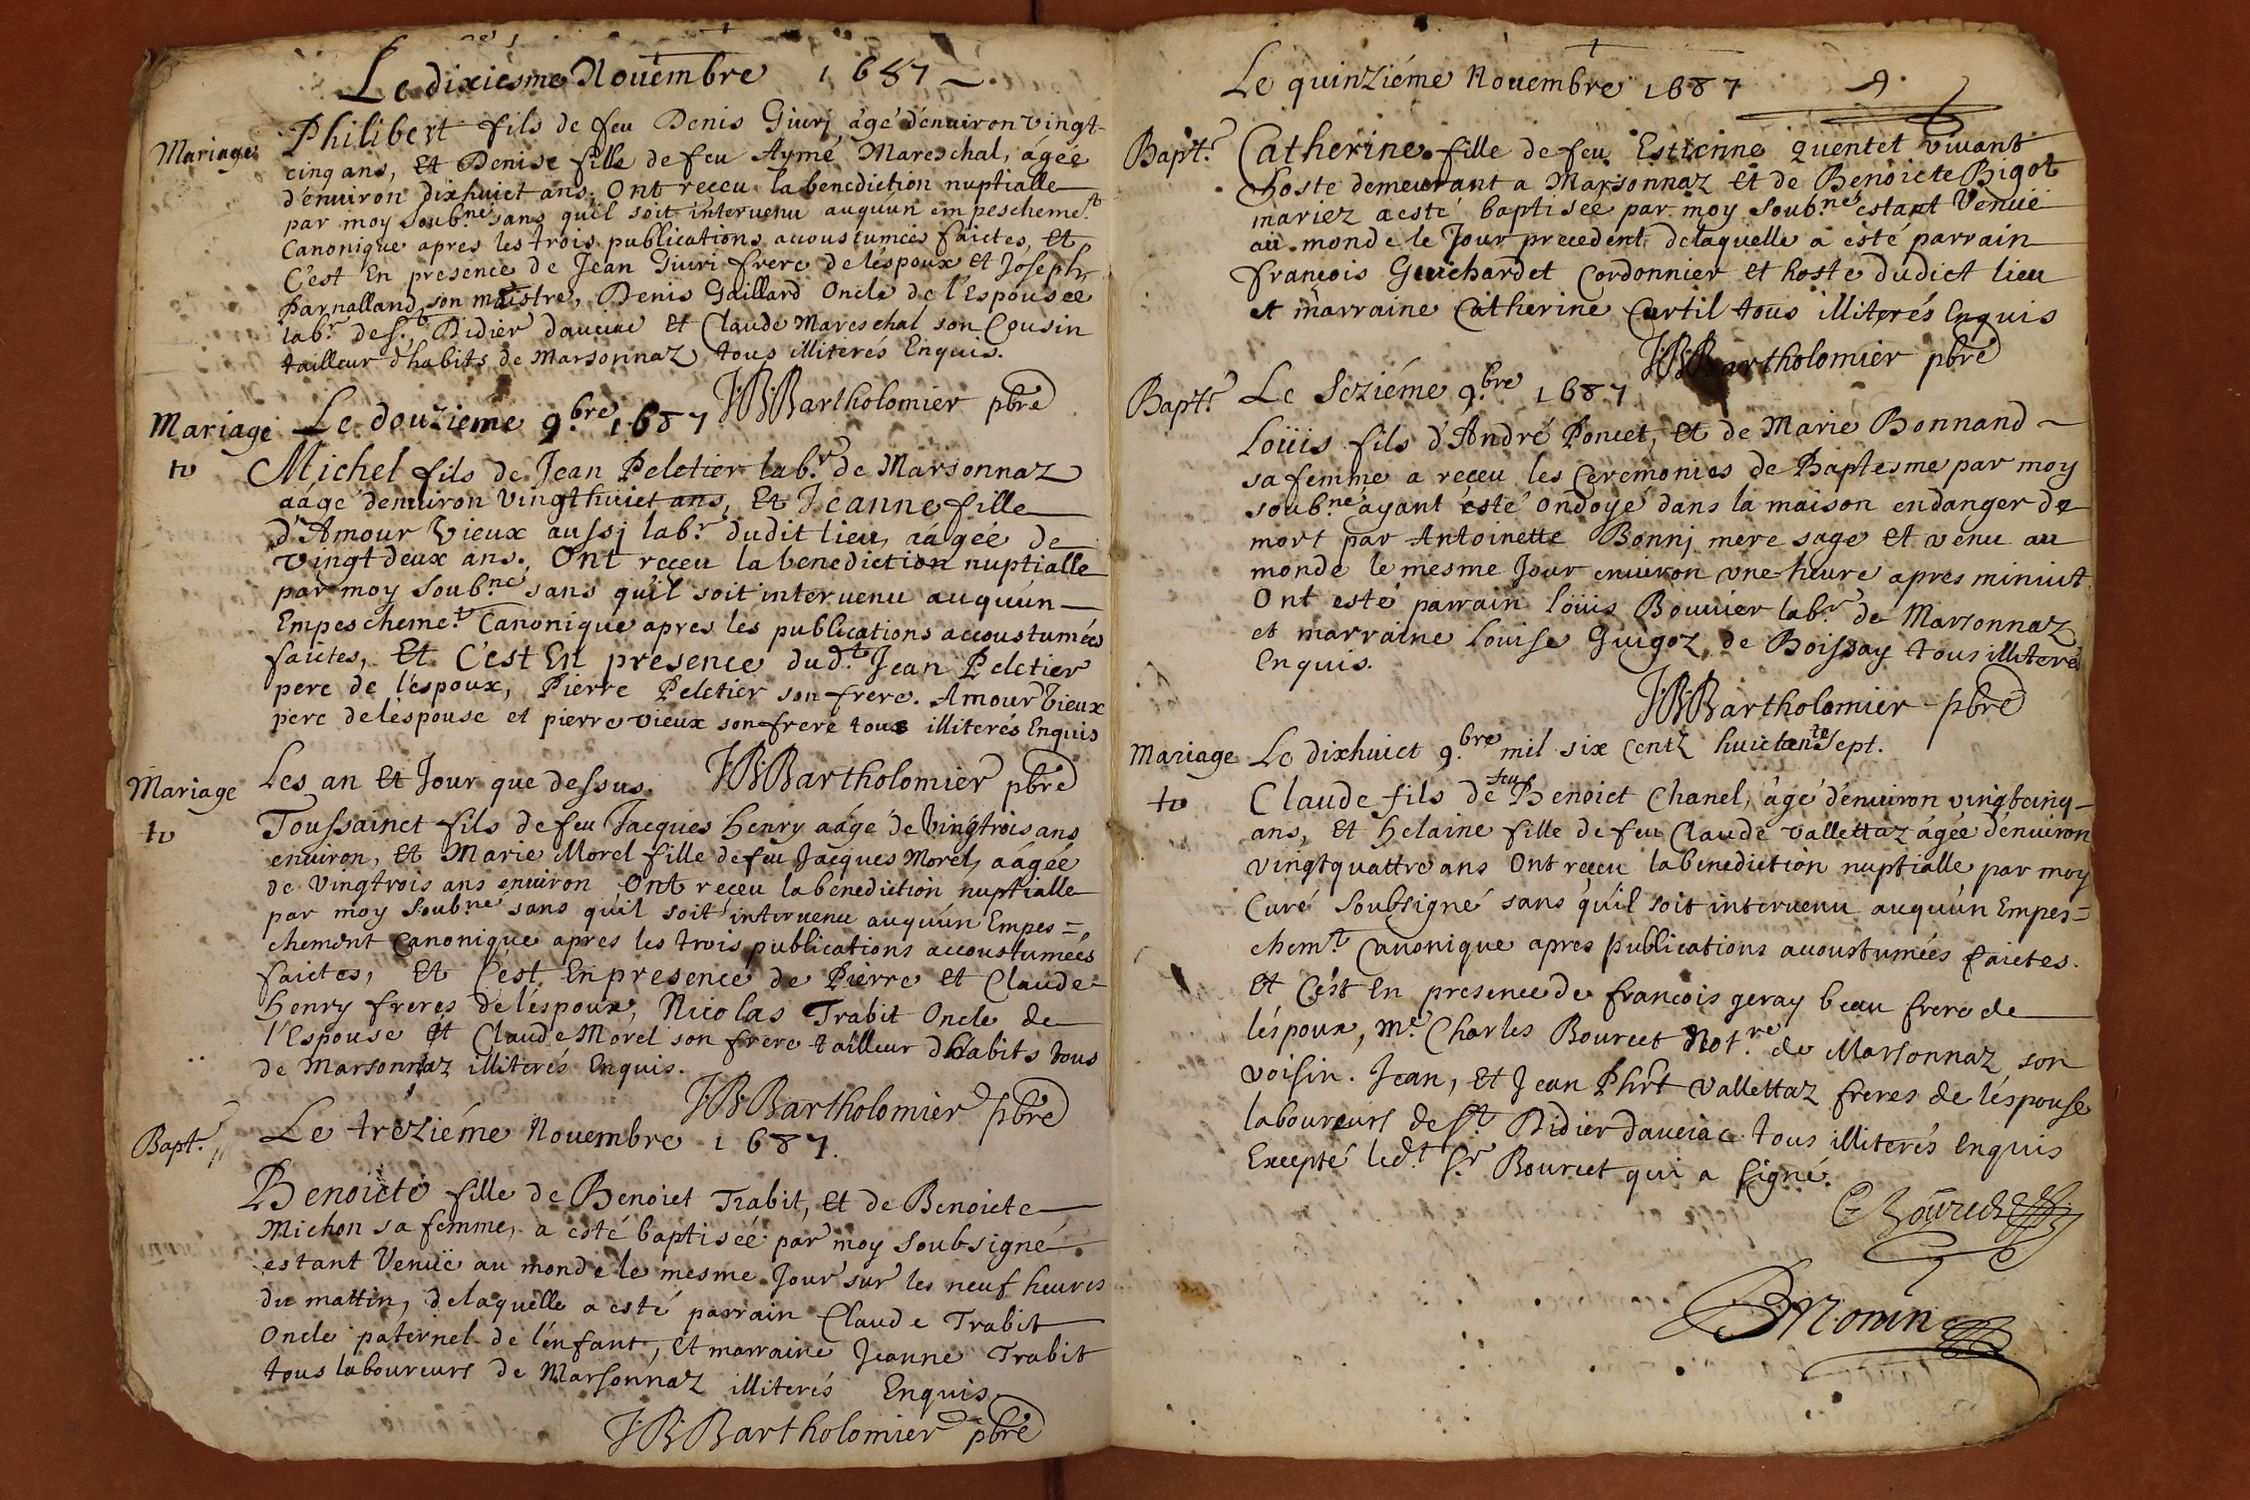 Le dixiesme Nouembre 1687
Mariage
Philibert fils de feu Denis Giuri, âgé d'enuiron vingt-
cinq ans, Et Denise fille de feu Aymé Mareschal, âgéé
d'enuiron dixhuict ans. Ont reçeu la benediction nuptialle
par moy soub.né sans qu'il soit interuenu auquun empescheme.t
Canonique apres les trois publications accoustumées faictes, Et
C'est En presence de Jean Giuri frere de l'éspoux et Joseph
Parnalland son maistre, Denis Gaillard Oncle de l'Espousée
lab.r de s.t Didier dauciac Et Claude Mareschal son Cousin
tailleur d'habits de Marsonnaz tous illiterés Enquis.
JB Bartholomier pbre
Mariage
Le douziéme 9.bre 1687
tv
Michel fils de Jean Peletier lab.r de Marsonnaz
aagé denuiron vingthuict ans, Et Jeanne fille
d'Amour Vieux aussj lab.r dudit lieu, aágéé de
vingt deux ans. Ont reçeu la benediction nuptialle
par moy Soub.né sans qu'il soit interuenu auquun
Empescheme.t Canonique apres les publications accoustumées
faictes, Et C'est En presence dud.t Jean Peletier
pere de l'éspoux, Pierre Peletier son frere. Amour Vieux
pere de léspouse et pierre vieux son frere tous illiterés Enquis
JB Bartholomier pbre
Mariage
Les an et Jour que dessus.
tv
Toussainct fils de feu Jacques henry aágé de Vingtrois ans
enuiron, Et Marie Morel fille de feu Jacques Morel, aágéé
de vingtrois ans enuiron Ont reçeu la benediction nuptialle
par moy soub.né sans qu'il soit interuenu auquun Empes=
chement Canonique apres les trois publications accoustumées
faictes, Et C'est En presence de Pierre et Claude
henry freres de l'éspoux, Nicolas Trabit Oncle de
l'Espouse Et Claude Morel son frere tailleur d'habits tous
de Marsonnaz illiterés Enquis.
JB Bartholomier pbre
Bapt.
Le trèziéme Nouembre 1687.
Benoicte fille de Benoict Trabit, Et de Benoicte
Michon sa femme, a esté baptiséé par moy soubsigné
estant Venüe au monde le mesme Jour sur les neuf heures
du mattin, de laquelle a esté parrain Claude Trabit
Oncle paternel de l'énfant, Et marraine Jeanne Trabit
tous laboureurs de Marsonnaz illiterés Enquis
JB Bartholomier pbre
Le quinziéme Nouembre 1687
9.
Bapt.
Catherine fille de feu Estienne Quentet vivant
hoste demeurant a Marsonnaz Et de Benoicte Bigot
mariez a esté baptiséé par moy soub.né estant Venüe
au monde le Jour precedent delaquelle a ésté parrain
françois Guichardet Cordonnier et hoste dudict lieu
et marraine Catherine Curtil tous illiterés Enquis
JB Bartholomier pbre
Bapt.
Le Seziéme 9.bre 1687
Loüis fils d'André Poncet, Et de Marie Bonnand
sa femme a reçeu les Ceremonies de Baptesme par moy
soub.né ayant ésté ondoyé dans la maison endanger de
mort par Antoinette Bonnj mere sage Et venu au
monde le mesme Jour enuiron vne heure apres minuit.
Ont esté parrain loüis Bouuier lab.r de Marsonnaz
et marraine Louise Guigoz de Boissay tous illiteré
Enquis.
JB Bartholomier pbre
Mariage
Le dixhuict 9.bre mil six Centz huictante Sept.
tv
Claude fils de feu Benoict Chanel, âgé d'enuiron vingtcinq
ans, Et helaine fille de feu Claude Vallettaz âgée d'énuiron
vingtquattre ans Ont reçeu la benediction nuptialle par moy
Curé Soubsigné sans qu'il soit interuenu auquun Empes=
chem.t Canonique apres publications accoustumées faictes.
Et C'est En presence de françois geray beau frere de
l'éspoux, M.e Charles Bourcet Not.re de Marsonnaz son
voisin. Jean, Et Jean Phr.t Vallettaz freres de l'éspouse
laboureurs de s.t Didier dauciac tous illiterés Enquis
Excepté led.t S.r Bourcet qui a signé.
C Bourcet
Monin